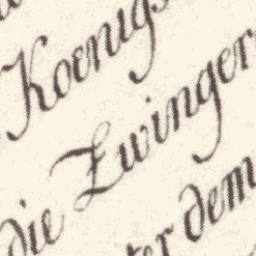 Koenigs
die Zwinger
ter dem